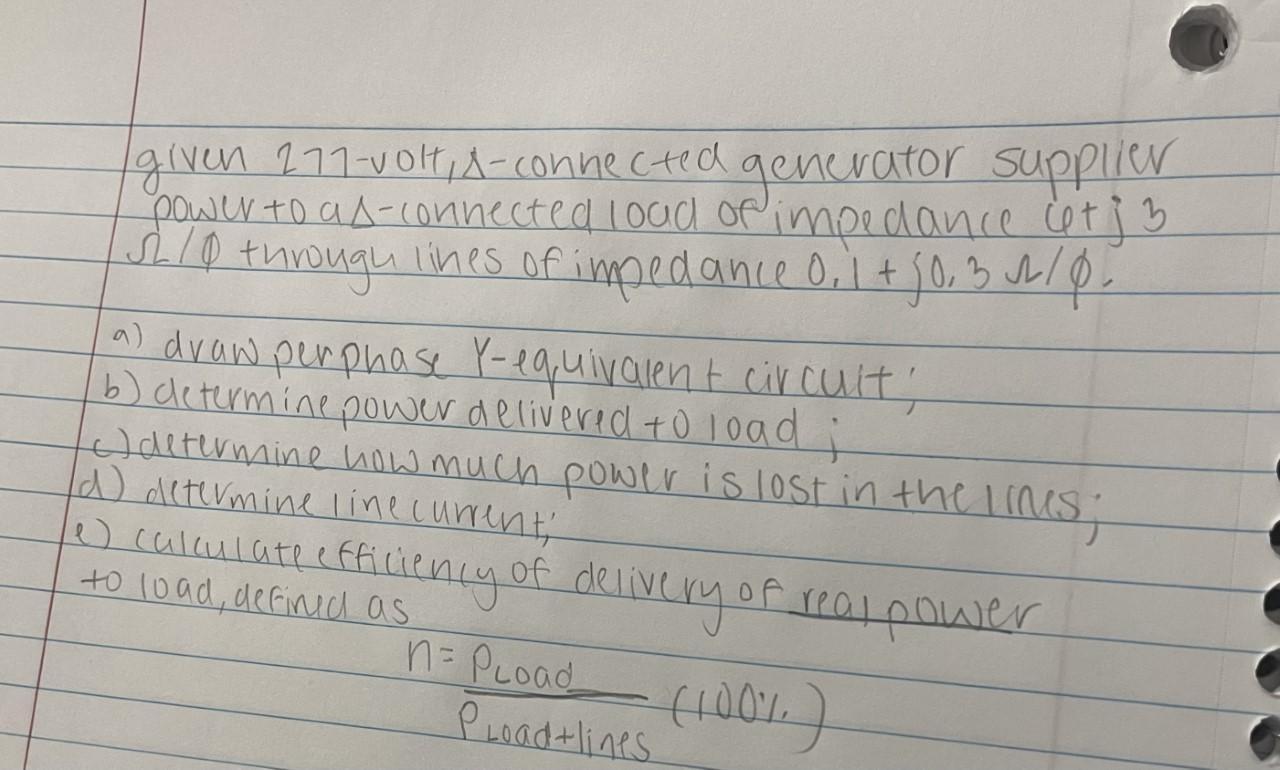 given 277-volt, Δ-connected generator supplier
power to a Δ-connected load of impedance 6+j3
Ω/φ through lines of impedance 0.1+j0.3 Ω/φ.
a) draw per phase Y-equivalent circuit;
b) determine power delivered to load;
c) determine how much power is lost in the lines;
d) determine line current;
e) calculate efficiency of delivery of real power
to load, defined as
n= PLoad (100%)
PLoad+lines